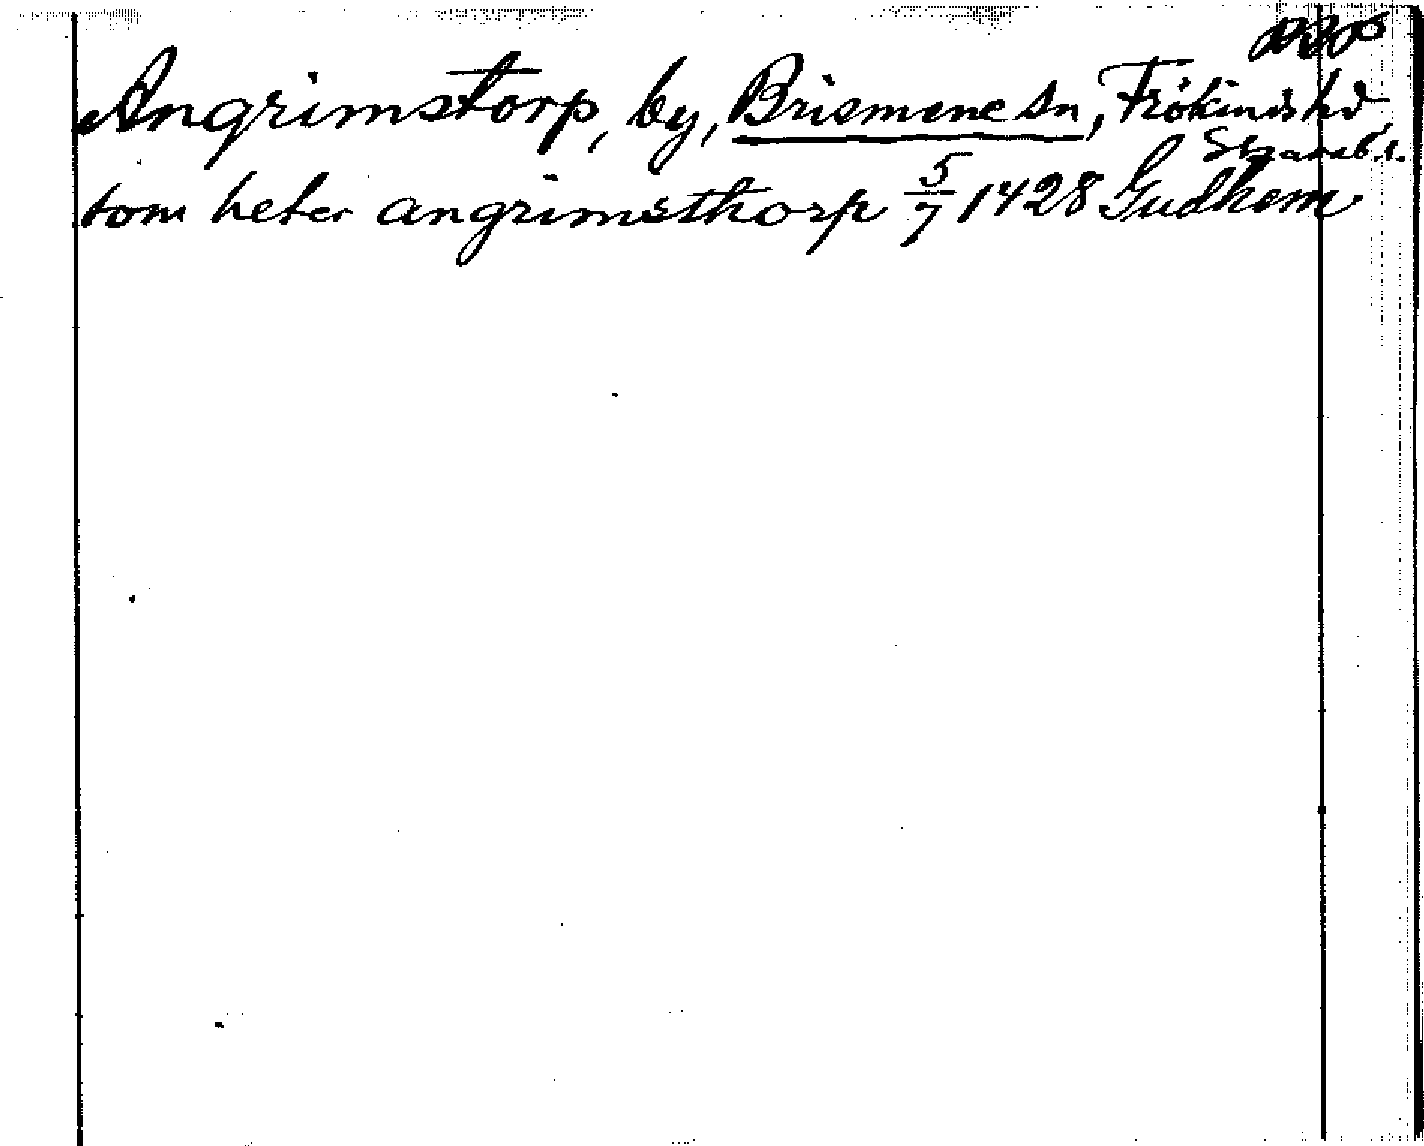 Angrimstorp, by, Brismene sn, Frökinds hd
Skarab. l.
som heter angrimsthorp 5/7 1428 Gudhem